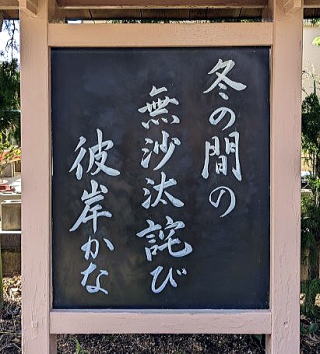 冬の間の
無沙汰詫び
彼岸かな